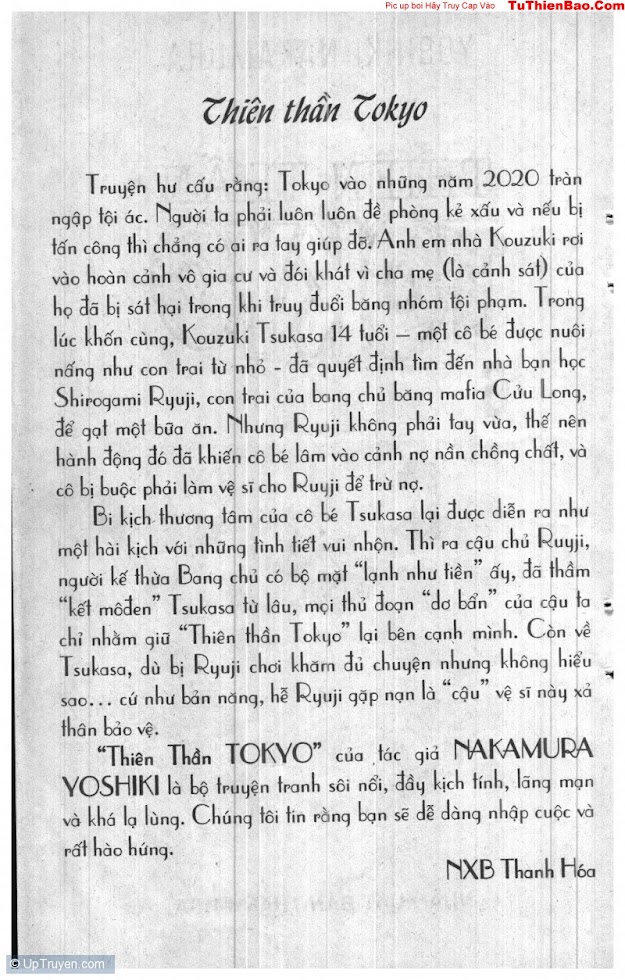 Pic up boi Hãy Truy Cap Vào TuThienBao.Com
Thiên thần Tokyo
Truyện hư cấu rằng: Tokyo vào những năm 2020 tràn
ngập tội ác. Người ta phải luôn luôn đề phòng kẻ xấu và nếu bị
tấn công thì chẳng có ai ra tay giúp đỡ. Anh em nhà Kouzuki rơi
vào hoàn cảnh vô gia cư và đói khát vì cha mẹ (là cảnh sát) của
họ đã bị sát hại trong khi truy đuổi băng nhóm tội phạm. Trong
lúc khốn cùng, Kouzuki Tsukasa 14 tuổi – một cô bé được nuôi
nấng như con trai từ nhỏ - đã quyết định tìm đến nhà bạn học
Shirogami Ryuji, con trai của bang chủ băng mafia Cửu Long,
để gạt một bữa ăn. Nhưng Ryuji không phải tay vừa, thế nên
hành động đó đã khiến cô bé lâm vào cảnh nợ nần chồng chất, và
cô bị buộc phải làm vệ sĩ cho Ruyji để trừ nợ.
Bi kịch thương tâm của cô bé Tsukasa lại được diễn ra như
một hài kịch với những tình tiết vui nhộn. Thì ra cậu chủ Ruyji,
người kế thừa Bang chủ có bộ mặt “lạnh như tiền” ấy, đã thầm
“kết môđen” Tsukasa từ lâu, mọi thủ đoạn “dơ bẩn” của cậu ta
chỉ nhằm giữ “Thiên thần Tokyo” lại bên cạnh mình. Còn về
Tsukasa, dù bị Ryuji chơi khăm đủ chuyện nhưng không hiểu
sao... cứ như bản năng, hễ Ryuji gặp nạn là “cậu” vệ sĩ này xả
thân bảo vệ.
“Thiên Thần TOKYO” của tác giả NAKAMURA
YOSHIKI là bộ truyện tranh sôi nổi, đầy kịch tính, lãng mạn
và khá lạ lùng. Chúng tôi tin rằng bạn sẽ dễ dàng nhập cuộc và
rất hào hứng.
NXB Thanh Hóa
© UpTruyen.com